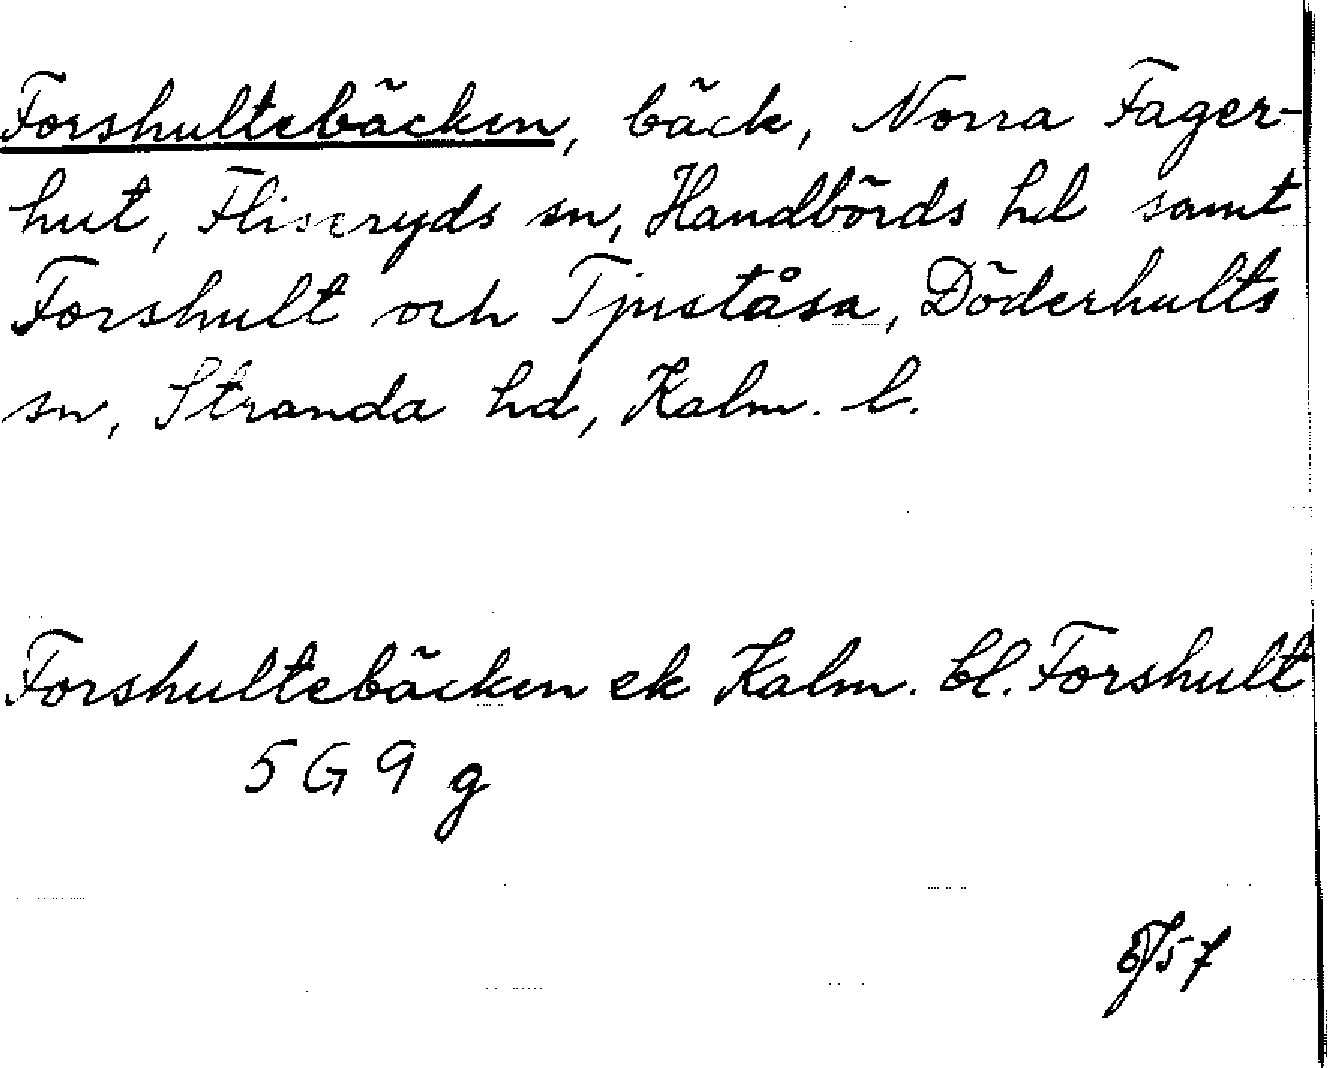 Forshultebäcken, bäck, Norra Fager-
hut, Fliseryds sn, Handbörds hd samt
Forshult och Tjuståsa, Döderhults
sn, Stranda hd, Kalm. l.
Forshultebäcken ek Kalm. bl. Forshult
5 G 9 g